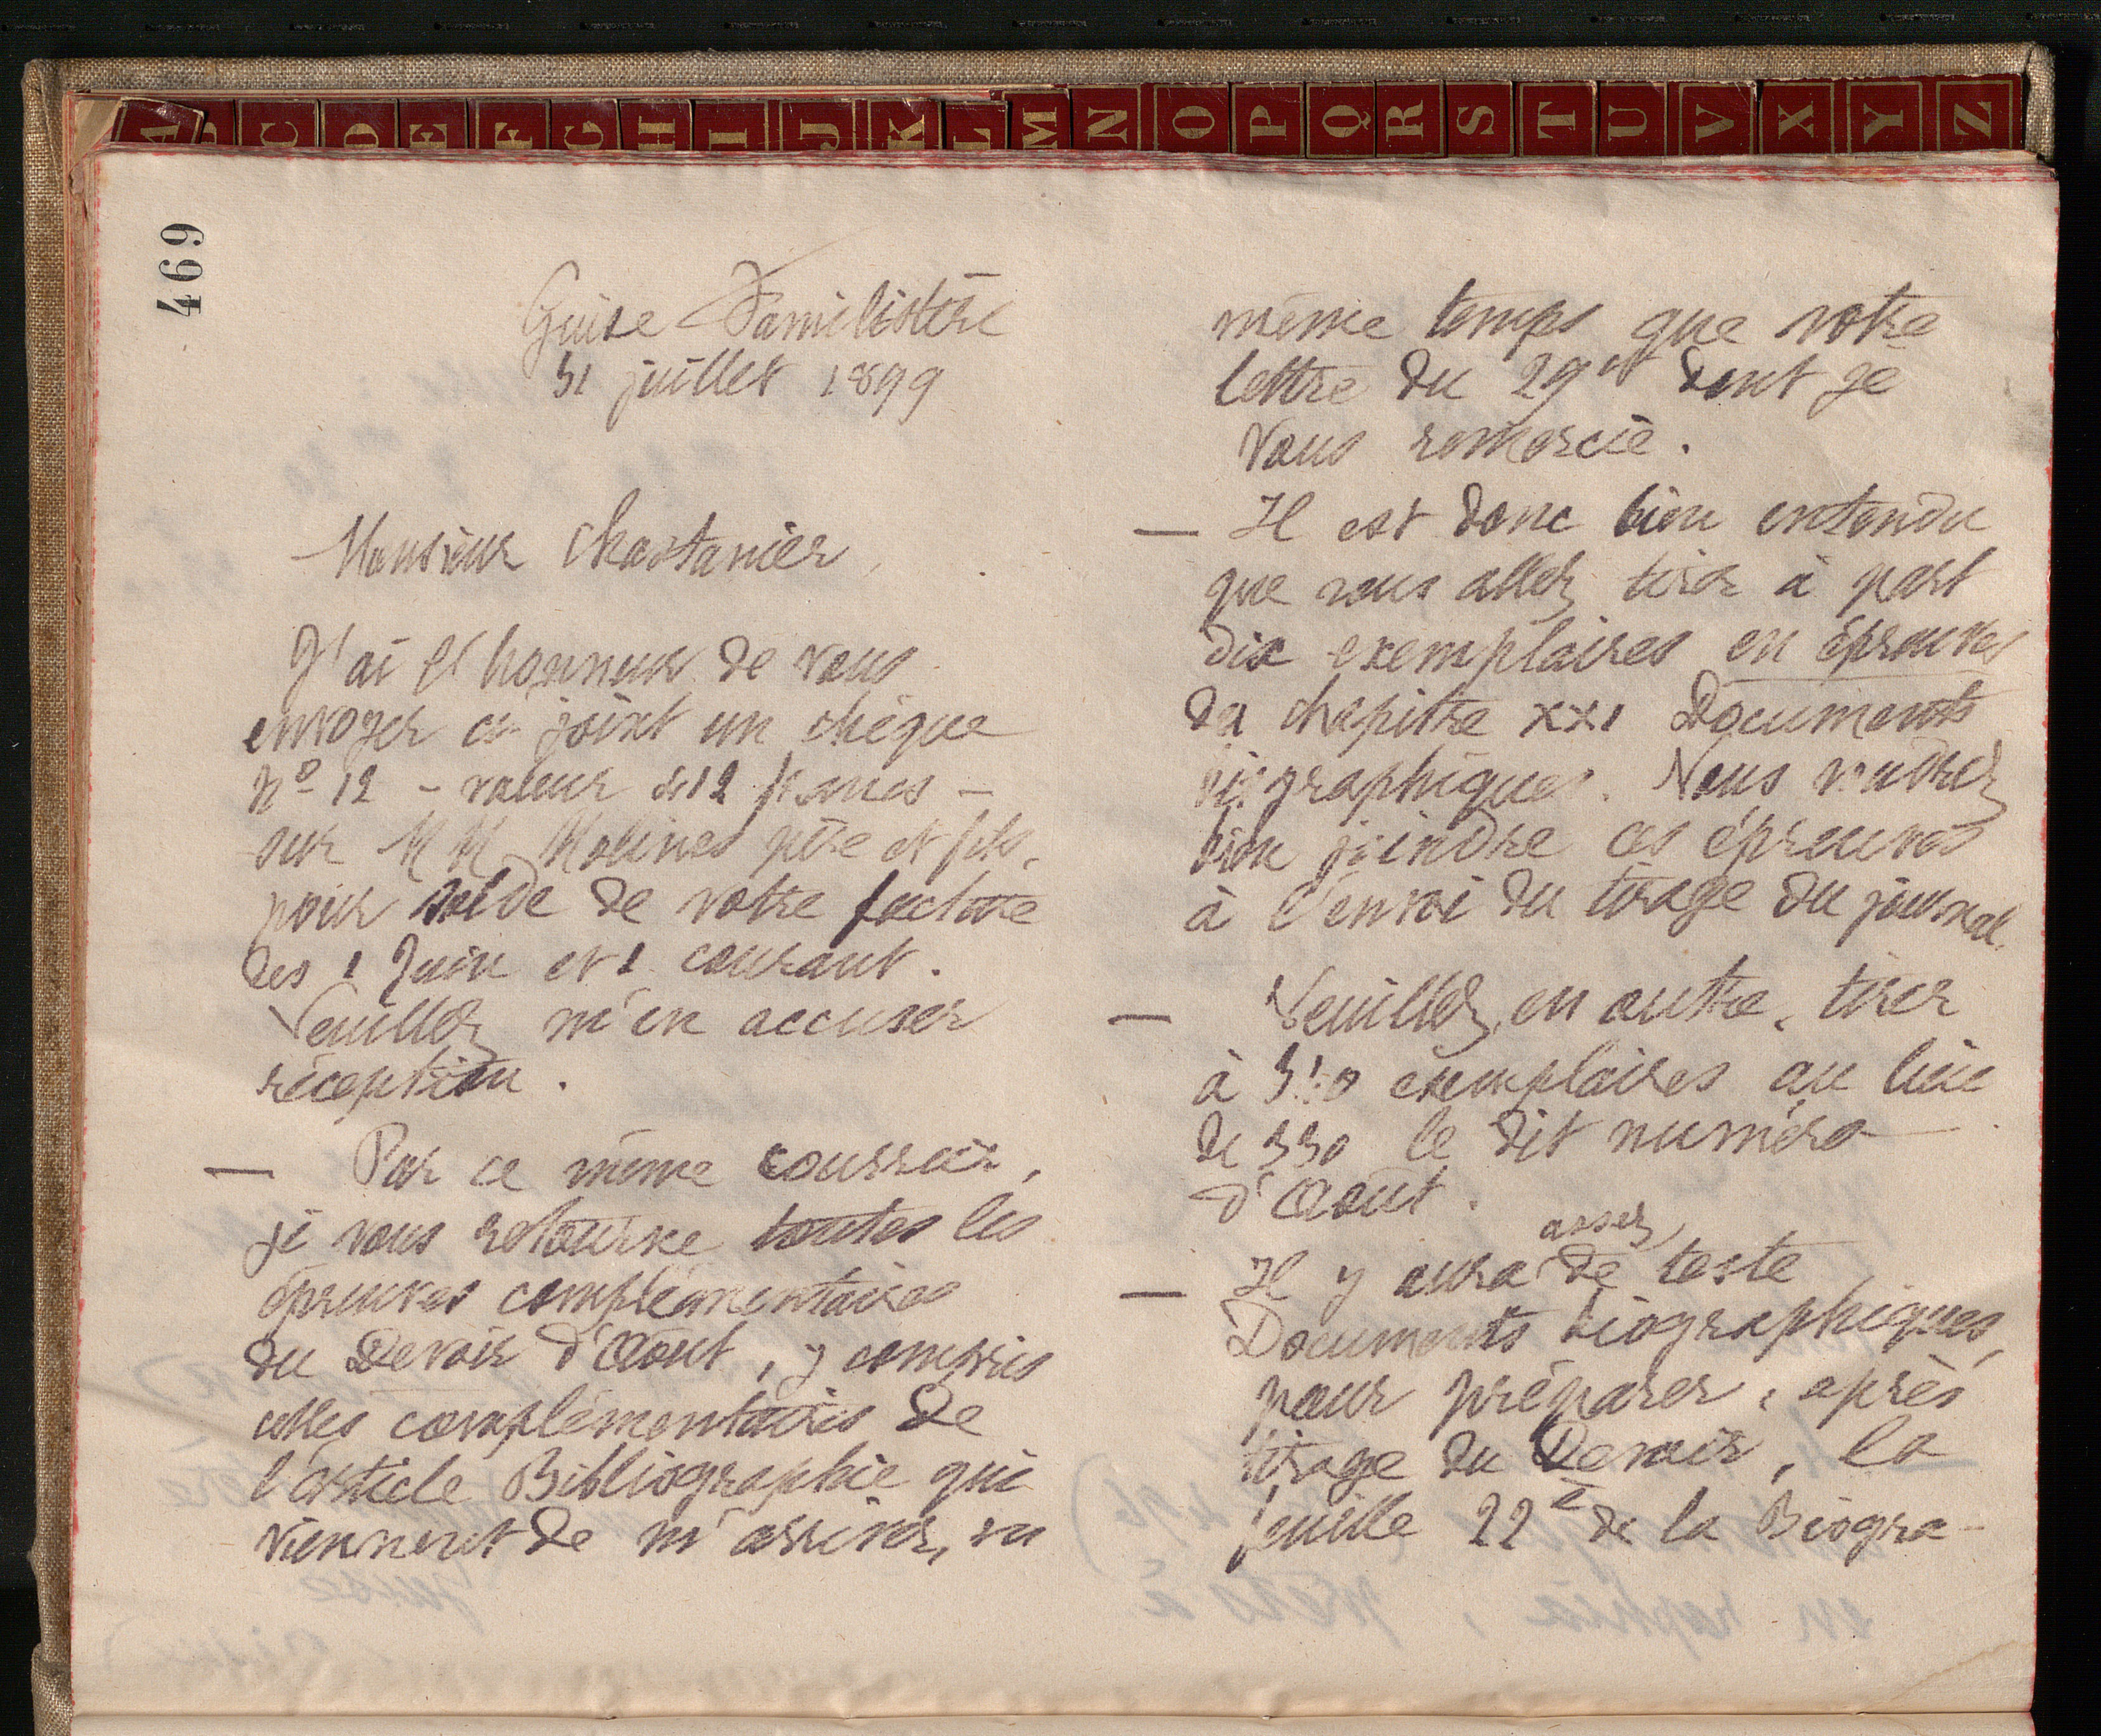 A B C D E F G H I J K L M N O P Q R S T U V X Y Z
469
Guise Familistère
31 juillet 1899
Monsieur Chastanier,
J'ai l'honneur de vous
envoyer ci-joint un chèque
No 12 - valeur 412 francs -
sur M M Molines père et fils,
pour solde de votre facture
des 1 Juin et 1 courant.
Veuillez m'en accuser
réception.
— Par ce même courrier,
je vous retourne toutes les
épreuves complémentaires
du Devoir d'Août, y compris
celles complémentaires de
l'article Bibliographie qui
viennent de m'arriver, en
même temps que votre
lettre du 29 et dont je
vous remercie.
— Il est donc bien entendu
que vous allez tirer à part
dix exemplaires en épreuves
du chapitre XXI Documents
biographiques. Vous voudrez
bien joindre ces épreuves
à l'envoi du tirage du journal.
— Veuillez, en outre, tirer
à exemplaires au lieu
de 330 le dit numéro
d'Août.
assez
— Il y aura de texte
Documents biographiques,
pour préparer, après
tirage du Devoir, la
feuille 22e de la Biogra-